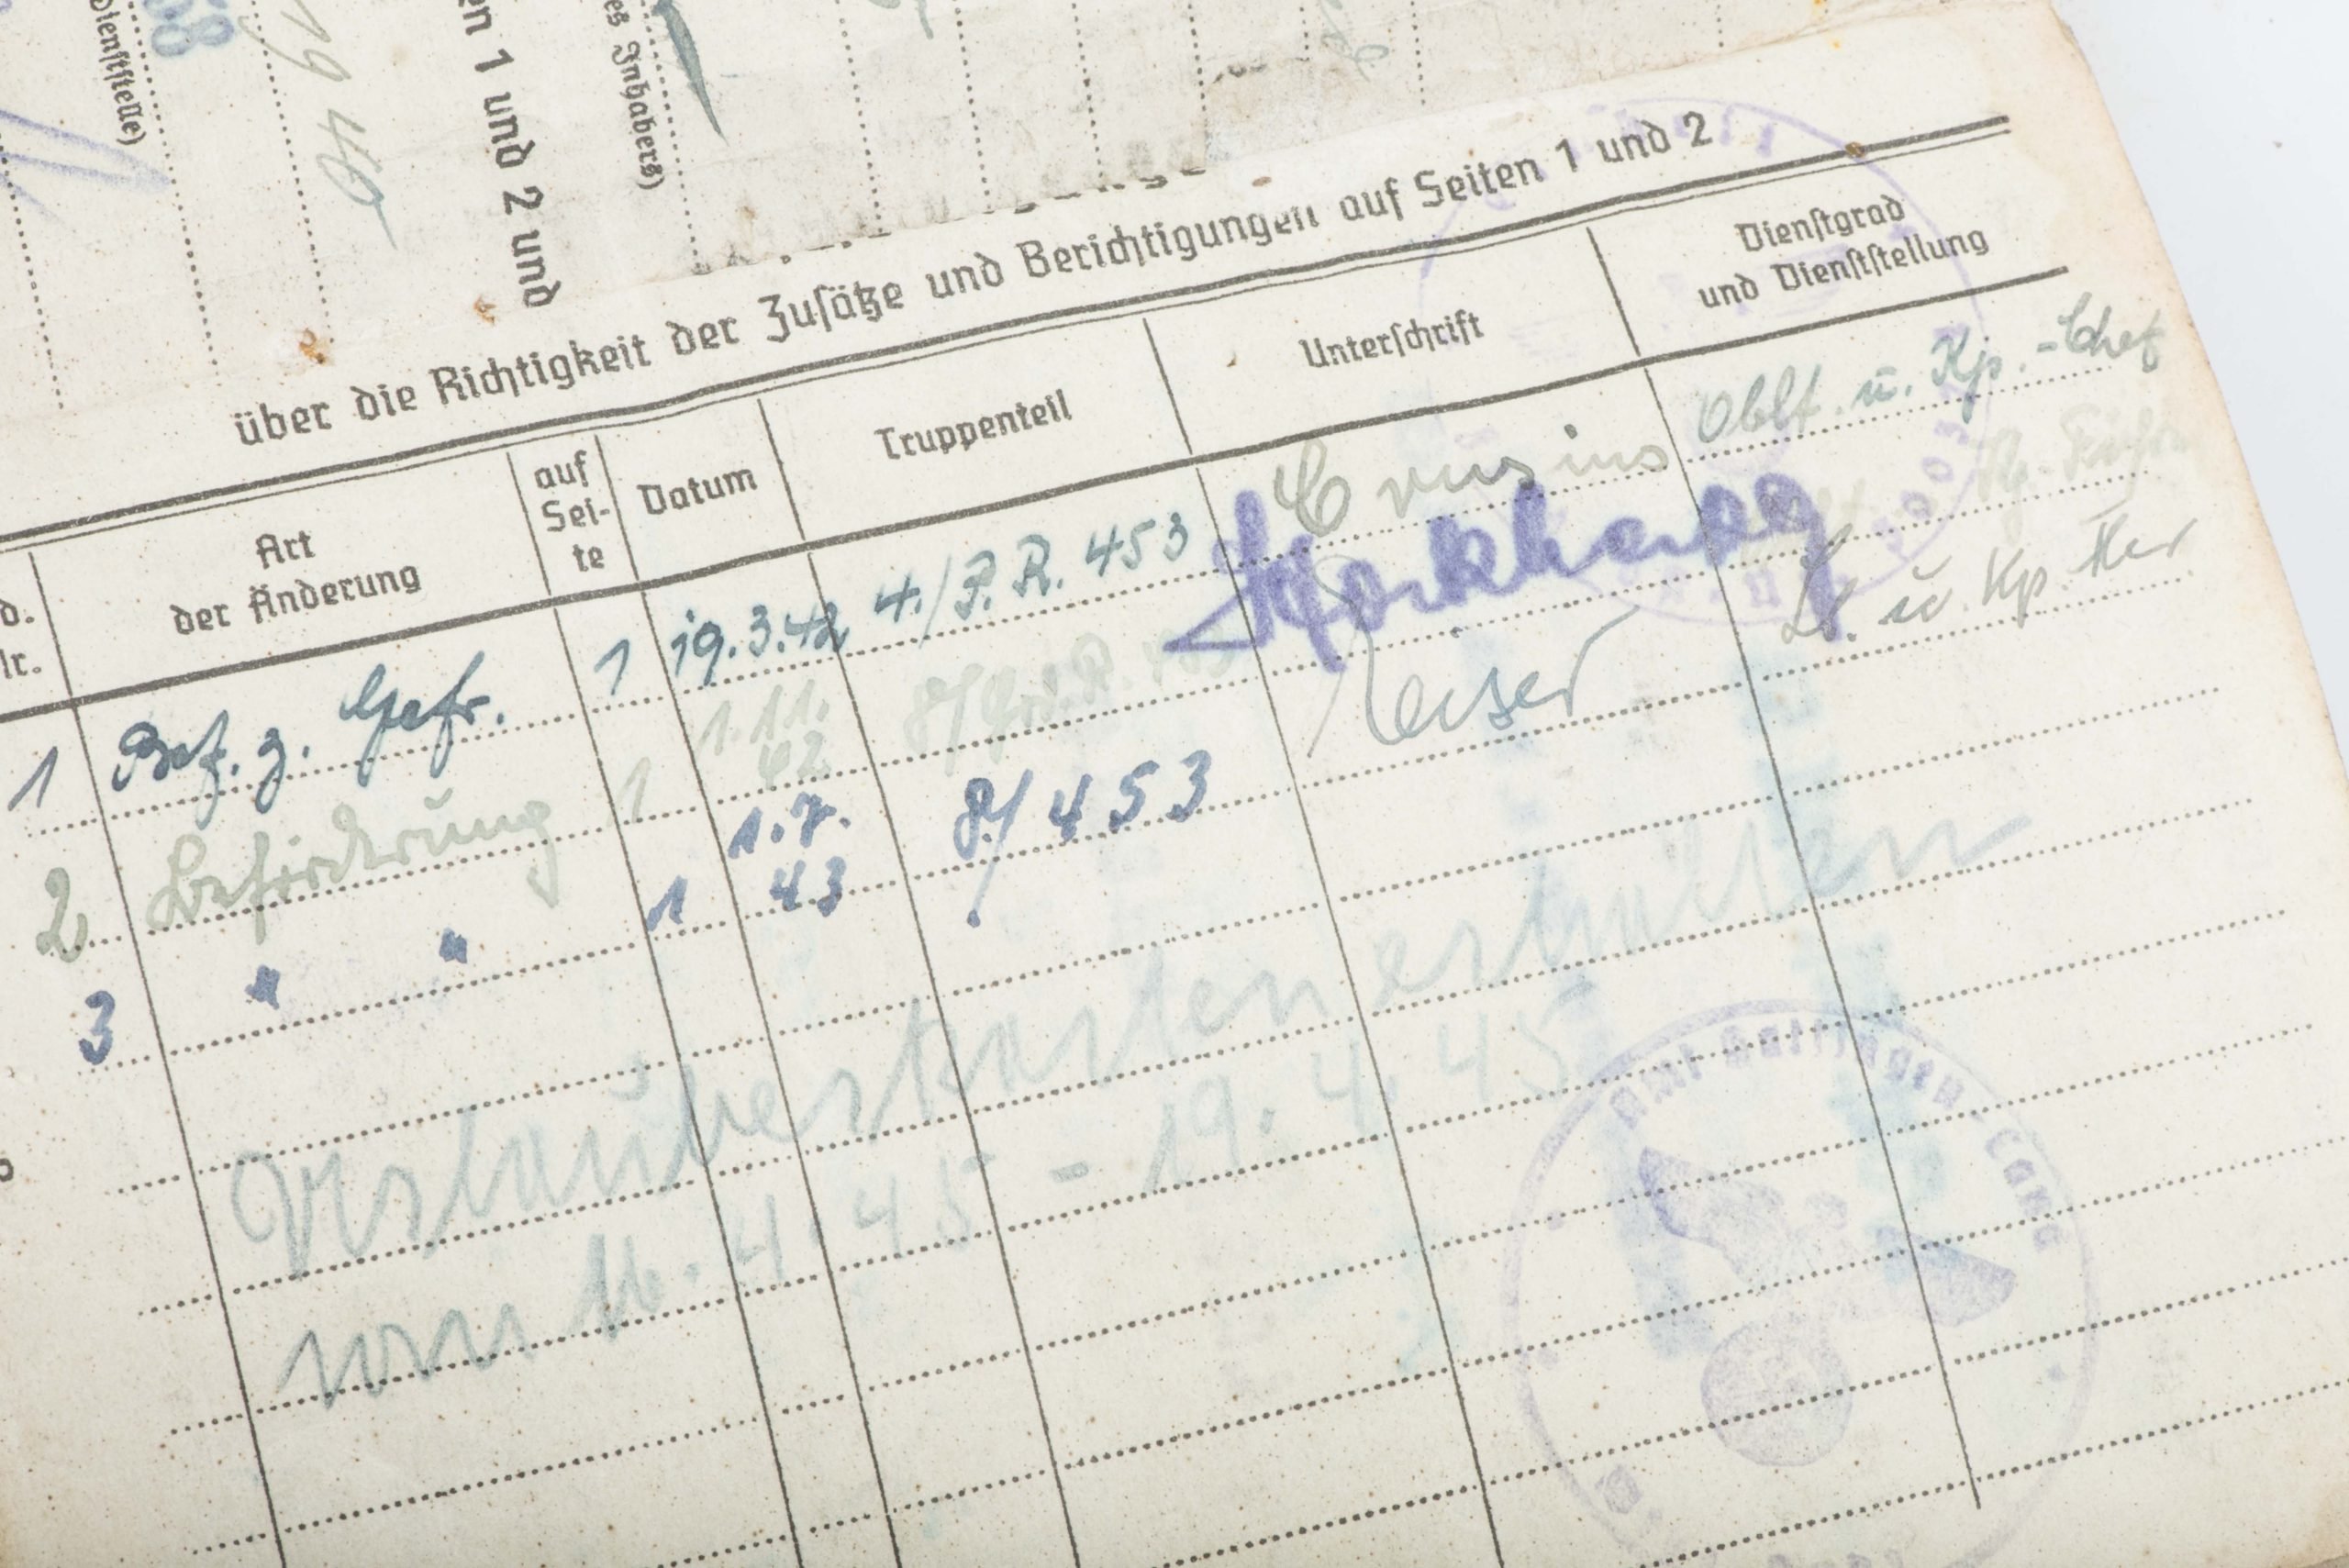 Dienststelle)
19 40
en 1 und 2 und
es Inhabers)
über die Richtigkeit der Zusätze und Berichtigungen auf Seiten 1 und 2
d.
Nr.
Art
der Änderung
auf
Sei-
te
Datum
Truppenteil
Unterschrift
Dienstgrad
und Dienststellung
1 Bef. z. Gefr. 1 19.3.42 4./J.R. 453 Crusius Oblt. u. Kp.-Chef
2 Beförderung 1 1.11.42 8/Gr.R. 453
3 " " 1 1.7.43 8/453 Lt. u Kp
Urlauberkarten erhalten
vom 16.4.45 - 19.4.45